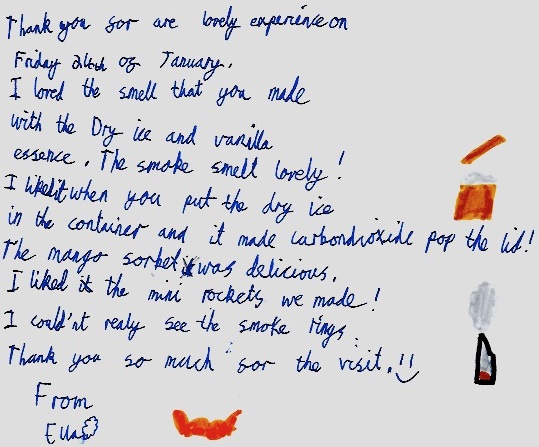 Thank you for are lovely experience on
Friday 24th of January.
I loved the smell that you made
with the Dry ice and vanilla
essence. The smoke smelt lovely!
I liked it when you put the dry ice
in the container and it made carbondioxide pop the lid!
The mango sorbet was delicious.
I liked the mini rockets we made!
I could'nt realy see the smoke rings.
Thank you so much for the visit.!!
From
Ella